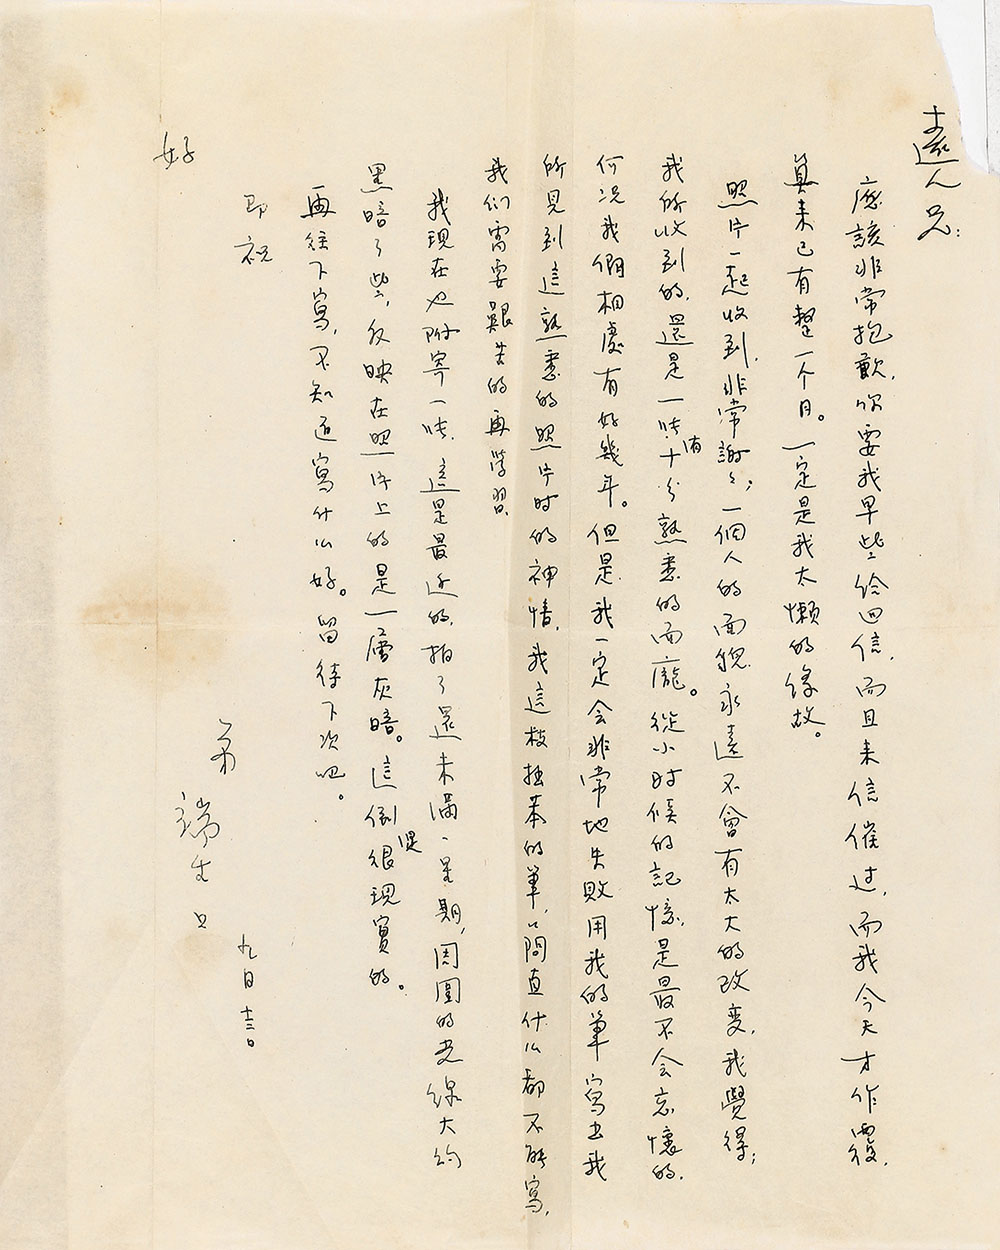 遠人兄:
應該非常抱歉,你要我早些給回信,而且來信催过,而我今天才作覆,
算来已有整一个月。一定是我太懒的缘故。
照片一起收到,非常謝々;一個人的面貌永遠不會有太大的改变,我覺得;
我所收到的,還是一张十分熟悉的面龐。從小时候的記憶,是最不会忘懷的,
何况我們相處有好幾年。但是,我一定会非常地失敗用我的筆寫出我
所見到這熟悉的照片时的神情,我這枝拙苯的筆,简直什么都不能寫,
我们需要艱苦的再學習,
我現在也附寄一张,這是最近的,拍了還未满一星期,周圍的光線大約
黑暗了些,反映在照片上的是一層灰暗。這倒是很現實的。
再往下寫,不知道寫什么好。留待下次吧。
即祝
好
弟
端生上
九月十三日